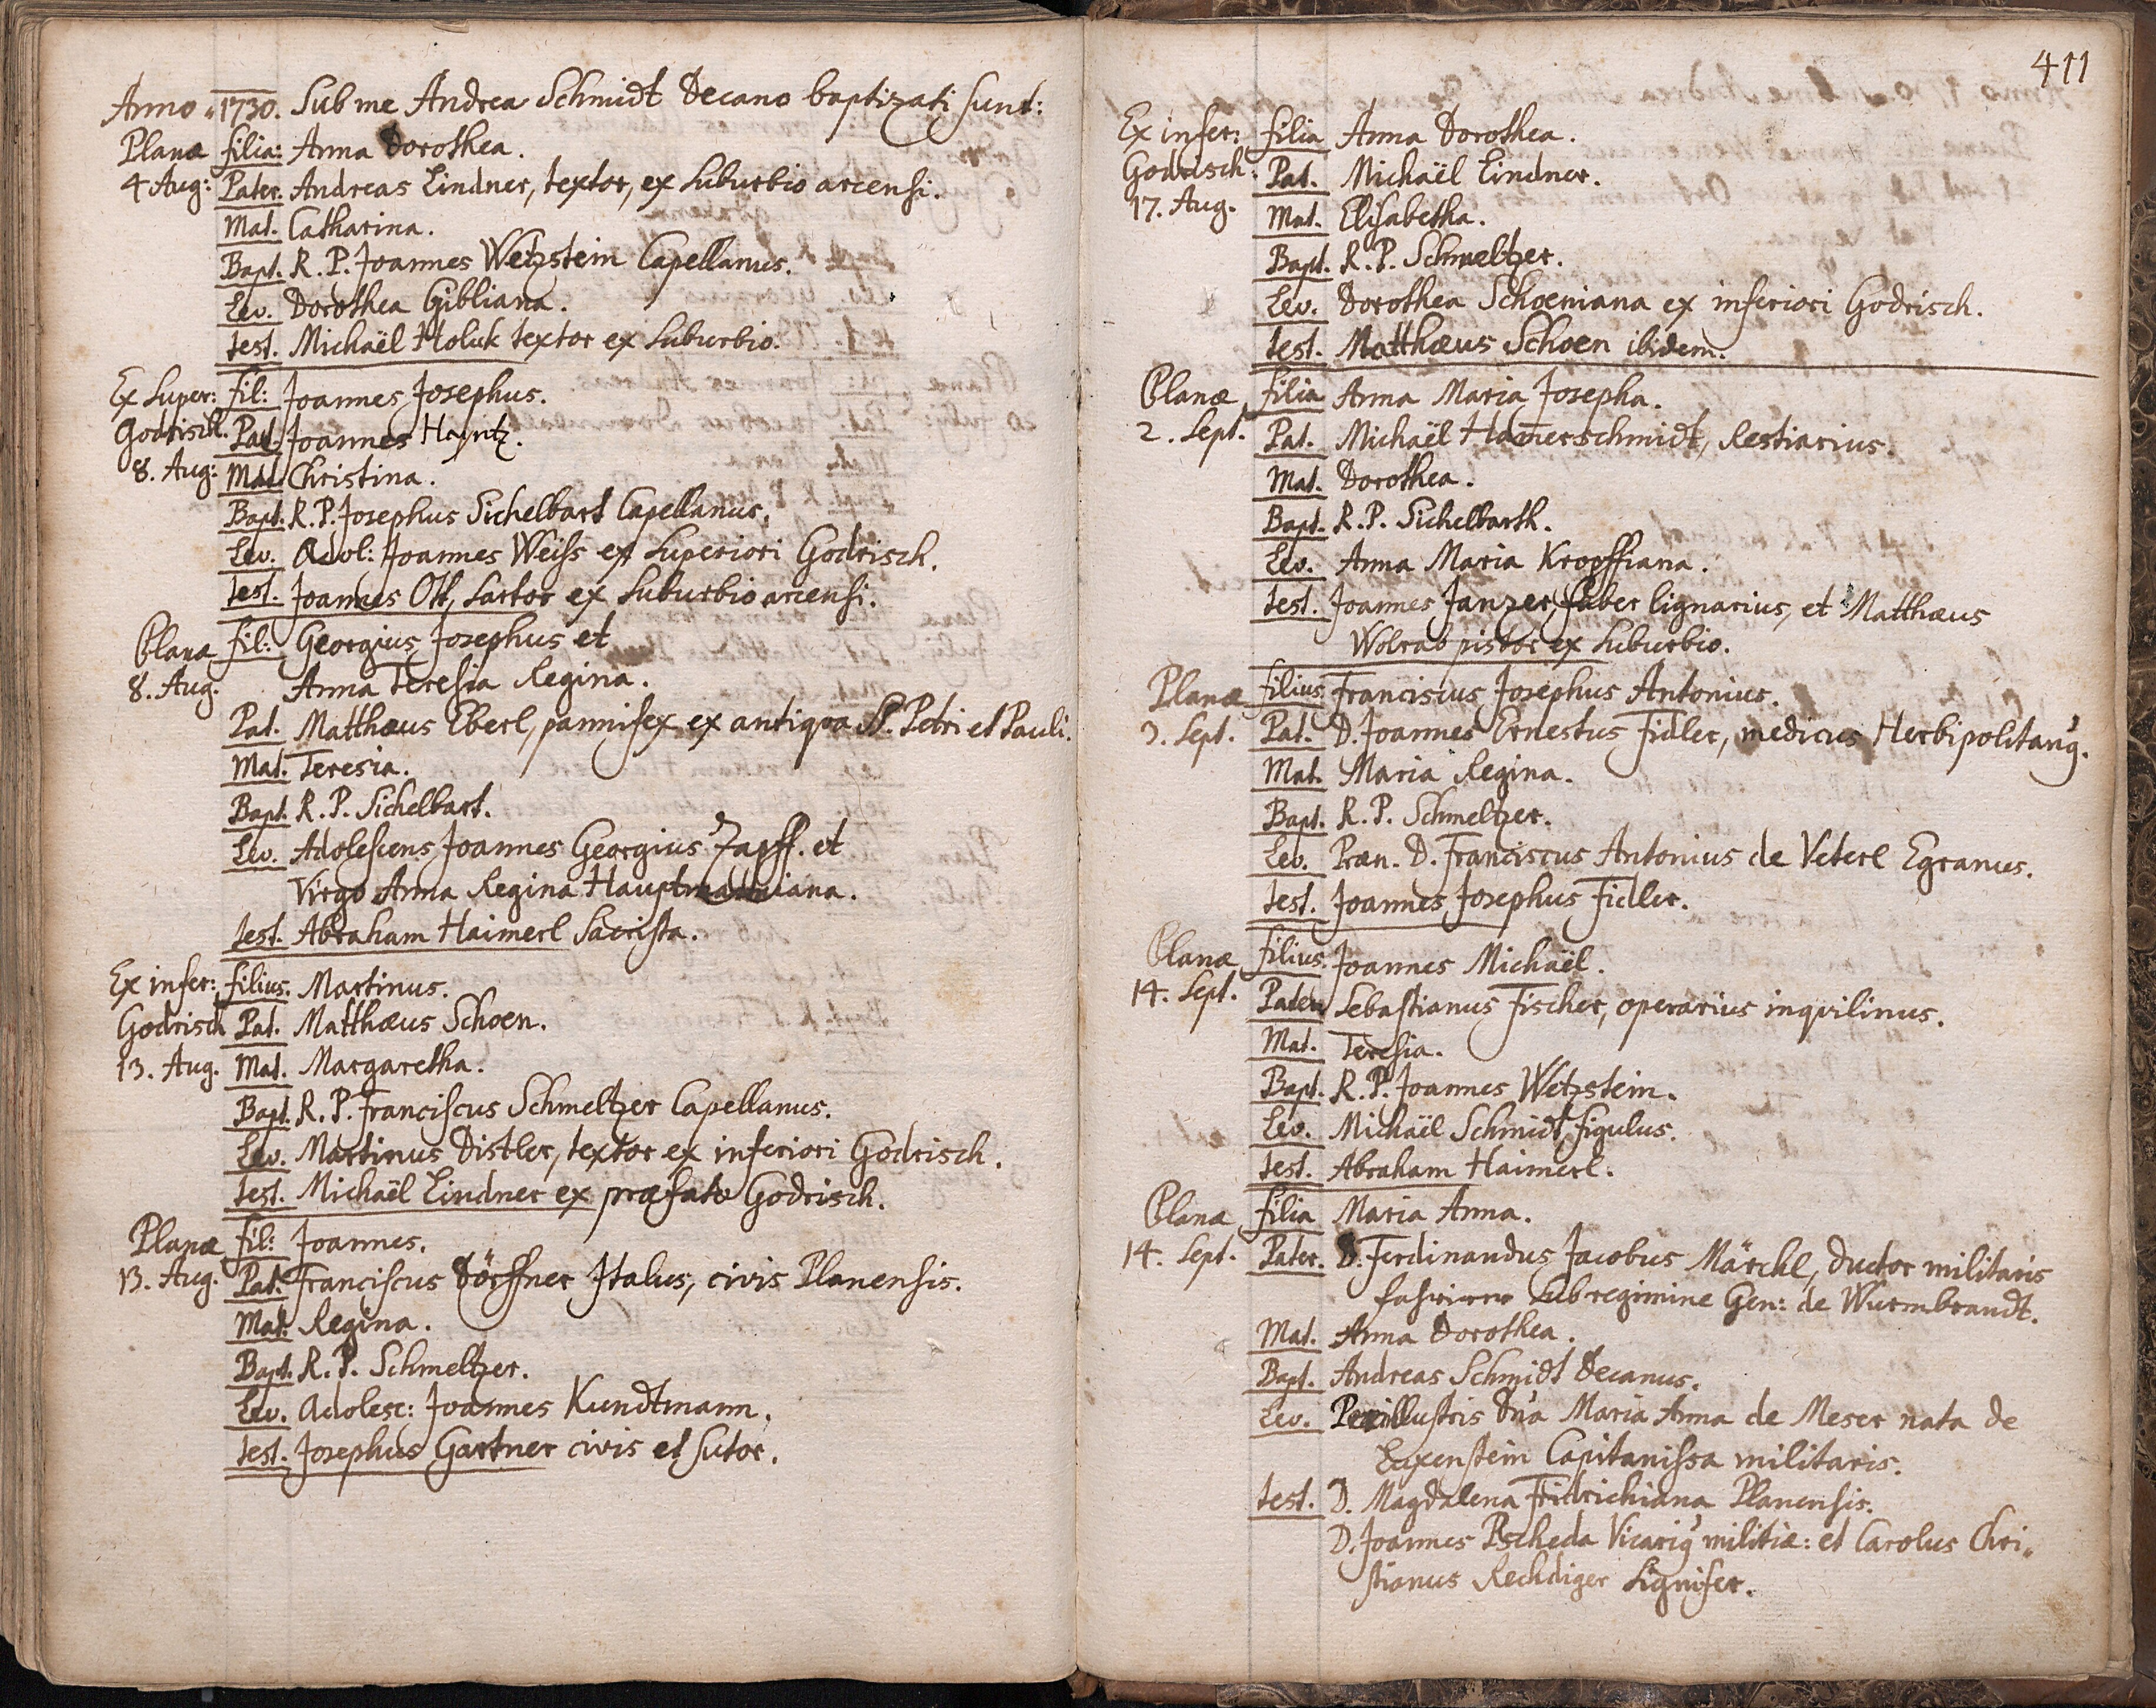 Anno 1730. Sub me Andrea Schmidt Decano baptizati sunt:
Planæ filia: Anna Dorothea.
4 Aug: Pater. Andreas Lindner, textor, ex suburbio arcensi.
Mat. Catharina.
Bapt. R. P. Joannes Wetzstein Capellanus.
Lev. Dorothea Gibliana.
test. Michaël Holuk textor ex suburbio.
Ex super: fil: Joannes Josephus.
Godrisch. Pat. Joannes Hayntz.
8. Aug: Mat. Christina.
Bapt. R. P. Josephus Sichelbart Capellanus.
Lev. Adol: Joannes Weiss ex superiori Godrisch.
test. Joannes Ott, sartor ex suburbio arcensi.
Planæ fil: Georgius Josephus et
8. Aug. Anna Teresia Regina.
Pat. Matthæus Eberl, pannifex ex antiqua SS. Petri et Pauli.
Mat. Teresia.
Bapt. R. P. Sichelbart.
Lev. Adolescens Joannes Georgius Zapff. et
Virgo Anna Regina Hauptmanniana.
test. Abraham Haimerl Sacrista.
Ex infer: filius. Martinus.
Godrisch Pat. Matthæus Schoen.
13. Aug. Mat. Margaretha.
Bapt. R. P. Franciscus Schmeltzer Capellanus.
Lev. Martinus Distler, textor ex inferiori Godrisch.
test. Michaël Lindner ex præfato Godrisch.
Planæ fil: Joannes.
13. Aug. Pat. Franciscus Dörffner Italus, civis Planensis.
Mat. Regina.
Bapt. R. P. Schmeltzer.
Lev. Adolesc: Joannes Kundtmann.
test. Josephus Gartner civis et sutor.
411
Ex infer: filia Anna Dorothea.
Godrisch. Pat. Michaël Lindner.
17. Aug. Mat. Elisabetha.
Bapt. R. P. Schmeltzer.
Lev. Dorothea Schoeniana ex inferiori Godrisch.
test. Matthæus Schoen ibidem.
Planæ filia Anna Maria Josepha.
2. Sept. Pat. Michaël Ham̄erschmidt, Restiarius.
Mat. Dorothea.
Bapt. R. P. Sichelbarth.
Lev. Anna Maria Kropffiana.
test. Joannes Janzer faber lignarius, et Matthæus
Wolrab pistor ex suburbio.
Planæ filius Franciscus Josephus Antonius.
3. Sept. Pat. D. Joannes Ernestus Fidler, medicus Herbipolitang̓.
Mat. Maria Regina.
Bapt. R. P. Schmeltzer.
Lev. Præn. D. Franciscus Antonius de Veterl Egranus.
test. Joannes Josephus Fidler.
Planæ filius. Joannes Michaël.
14. Sept. Pater Sebastianus Fischer, operarius inquilinus.
Mat. Teresia.
Bapt. R. P. Joannes Wetzstein.
Lev. Michaël Schmidt, figulus.
test. Abraham Haimerl.
Planæ filia Maria Anna.
14. Sept. Pater. D. Ferdinandus Jacobus Märckl, ductor militaris
sub regimine Gen: de Wurmbrandt.
Mat. Anna Dorothea.
Bapt. Andreas Schmidt Decanus.
Lev. Perillustris Dn̄a Maria Anna de Meser nata de
Luxenstein Capitanissa militaris.
test. D. Magdalena Fridrichiana Planensis.
D. Joannes Pscheda Vicarig̓ militiæ: et Carolus Chri„
stianus Rechdiger Signifer.